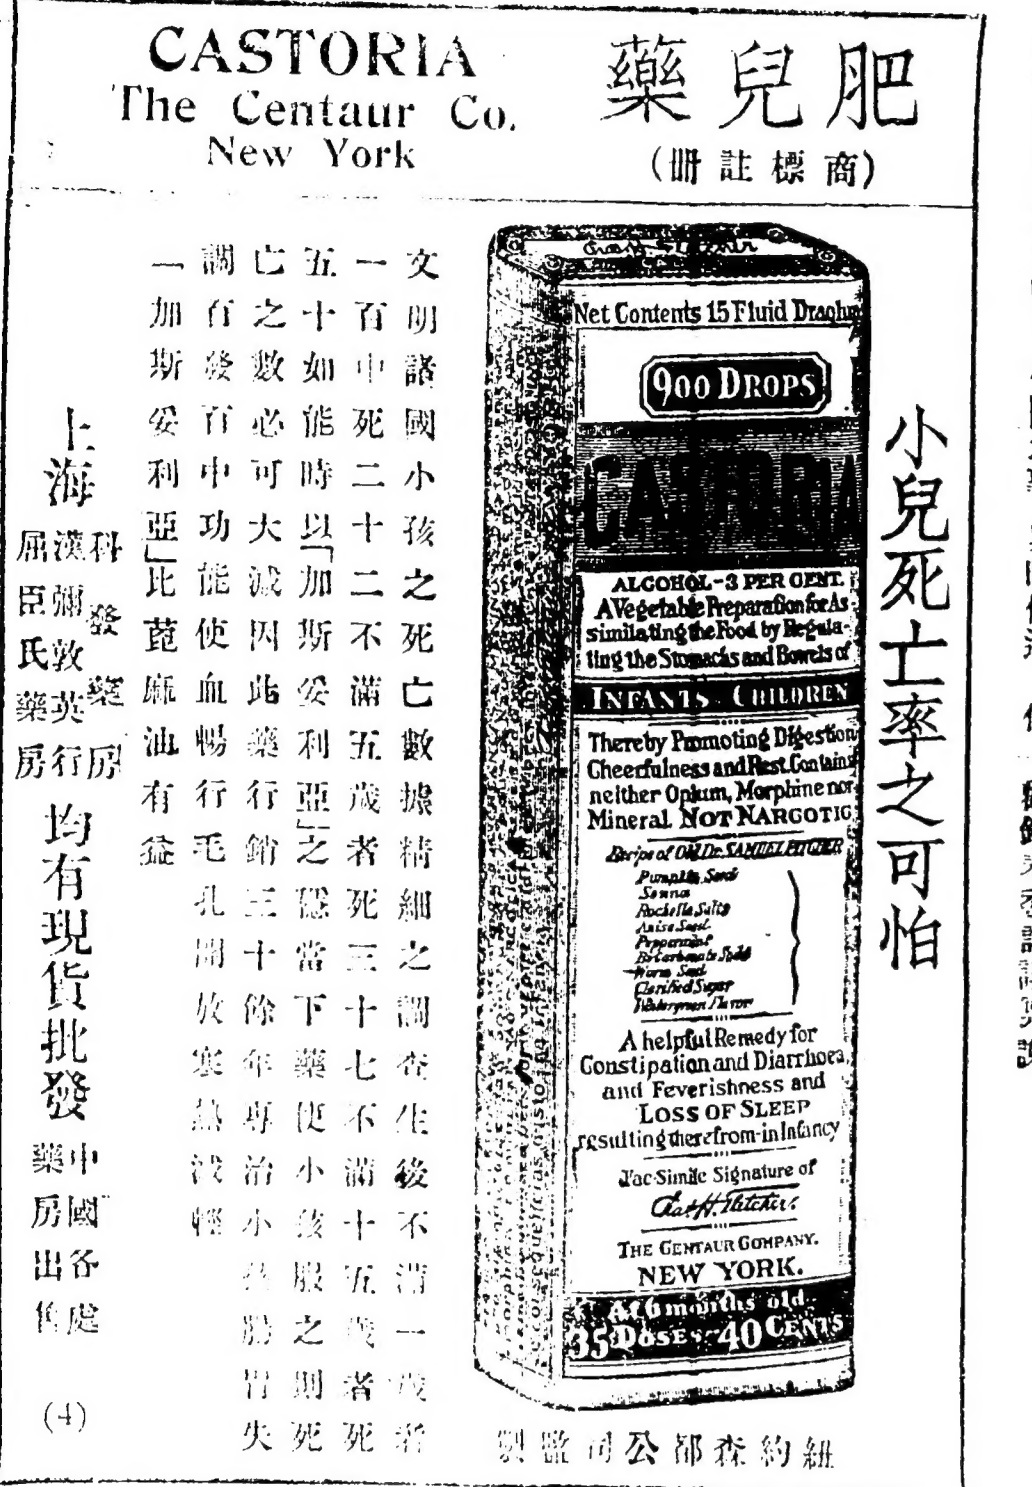 CASTORIA
The Centaur Co.
New York
肥兒藥
(商標註冊)
小兒死亡率之可怕
Net Contents 15 Fluid Drachm
900 DROPS
CASTORIA
ALCOHOL-3 PER CENT.
A Vegetable Preparation for As-
similating the Food by Regula-
ting the Stomachs and Bowels of
INFANTS CHILDREN
Thereby Promoting Digestion
Cheerfulness and Rest. Contains
neither Opium, Morphine nor
Mineral. NOT NARCOTIC
Recipe of Old Dr. SAMUEL PITCHER
Pumpkin Seed
Senna
Rochelle Salts
Anise Seed
Peppermint
Bicarbonate Soda
Worm Seed
Clarified Sugar
Wintergreen Flavor
A helpful Remedy for
Constipation and Diarrhoea,
and Feverishness and
LOSS OF SLEEP
resulting therefrom-in Infancy
Fac-Simile Signature of
Chas. H. Fletcher.
THE CENTAUR COMPANY,
NEW YORK.
At 6 months old
35 DOSES-40 CENTS
紐約森都公司監製
文明諸國小孩之死亡數據精細之調查生後不滿一歲者
一百中死二十二不滿五歲者死三十七不滿十五歲者死
五十如能時以「加斯妥利亞」之穩當下藥使小孩服之則死
亡之數必可大減因此藥行銷三十餘年專治小孩腸胃失
調百發百中功能使血暢行毛孔開放寒熱減輕
一加斯妥利亞」比蓖麻油有益
上海
科發藥房
漢彌敦英行
屈臣氏藥房
均有現貨批發
中國各處
藥房出售
(4)